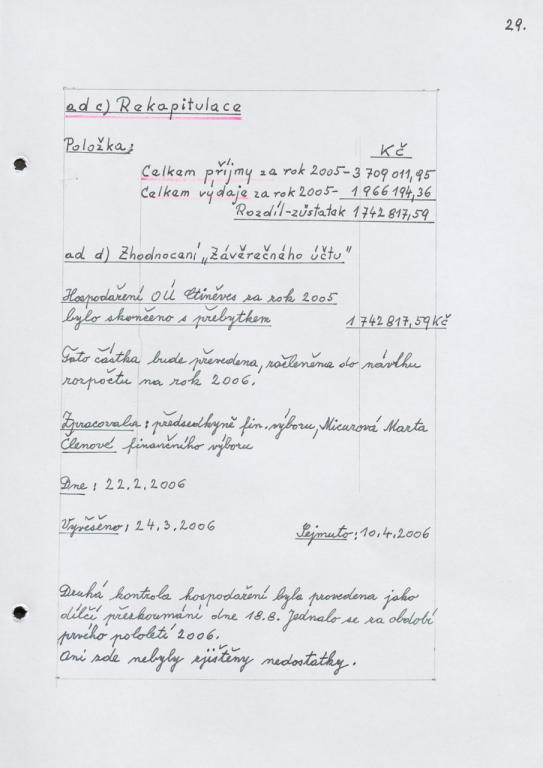 29.
ad c) Rekapitulace
Položka:
Kč
Celkem příjmy za rok 2005-3 709 011,95
Celkem výdaje za rok 2005- 1 966 194,36
Rozdíl-zůstatek 1 742 817,59
ad d) Zhodnocaní „Závěračného účtu"
Hospodaření OÚ Ctiněves za rok 2005
bylo skončeno s přebytkem 1 742 817,59 Kč
Tato částka bude převedena, začleněna do návrhu
rozpočtu na rok 2006.
Zpracovala: předsedkyně fin. výboru, Micurová Marta
Členové finančního výboru
Dne: 22.2.2006
Vyvěšeno: 24.3.2006 Sejmuto: 10.4.2006
Druhá kontrola hospodaření byla provedena jako
dílčí přezkoumání dne 18.8. Jednalo se za období
prvého pololetí 2006.
Ani zde nebyly zjištěny nedostatky.